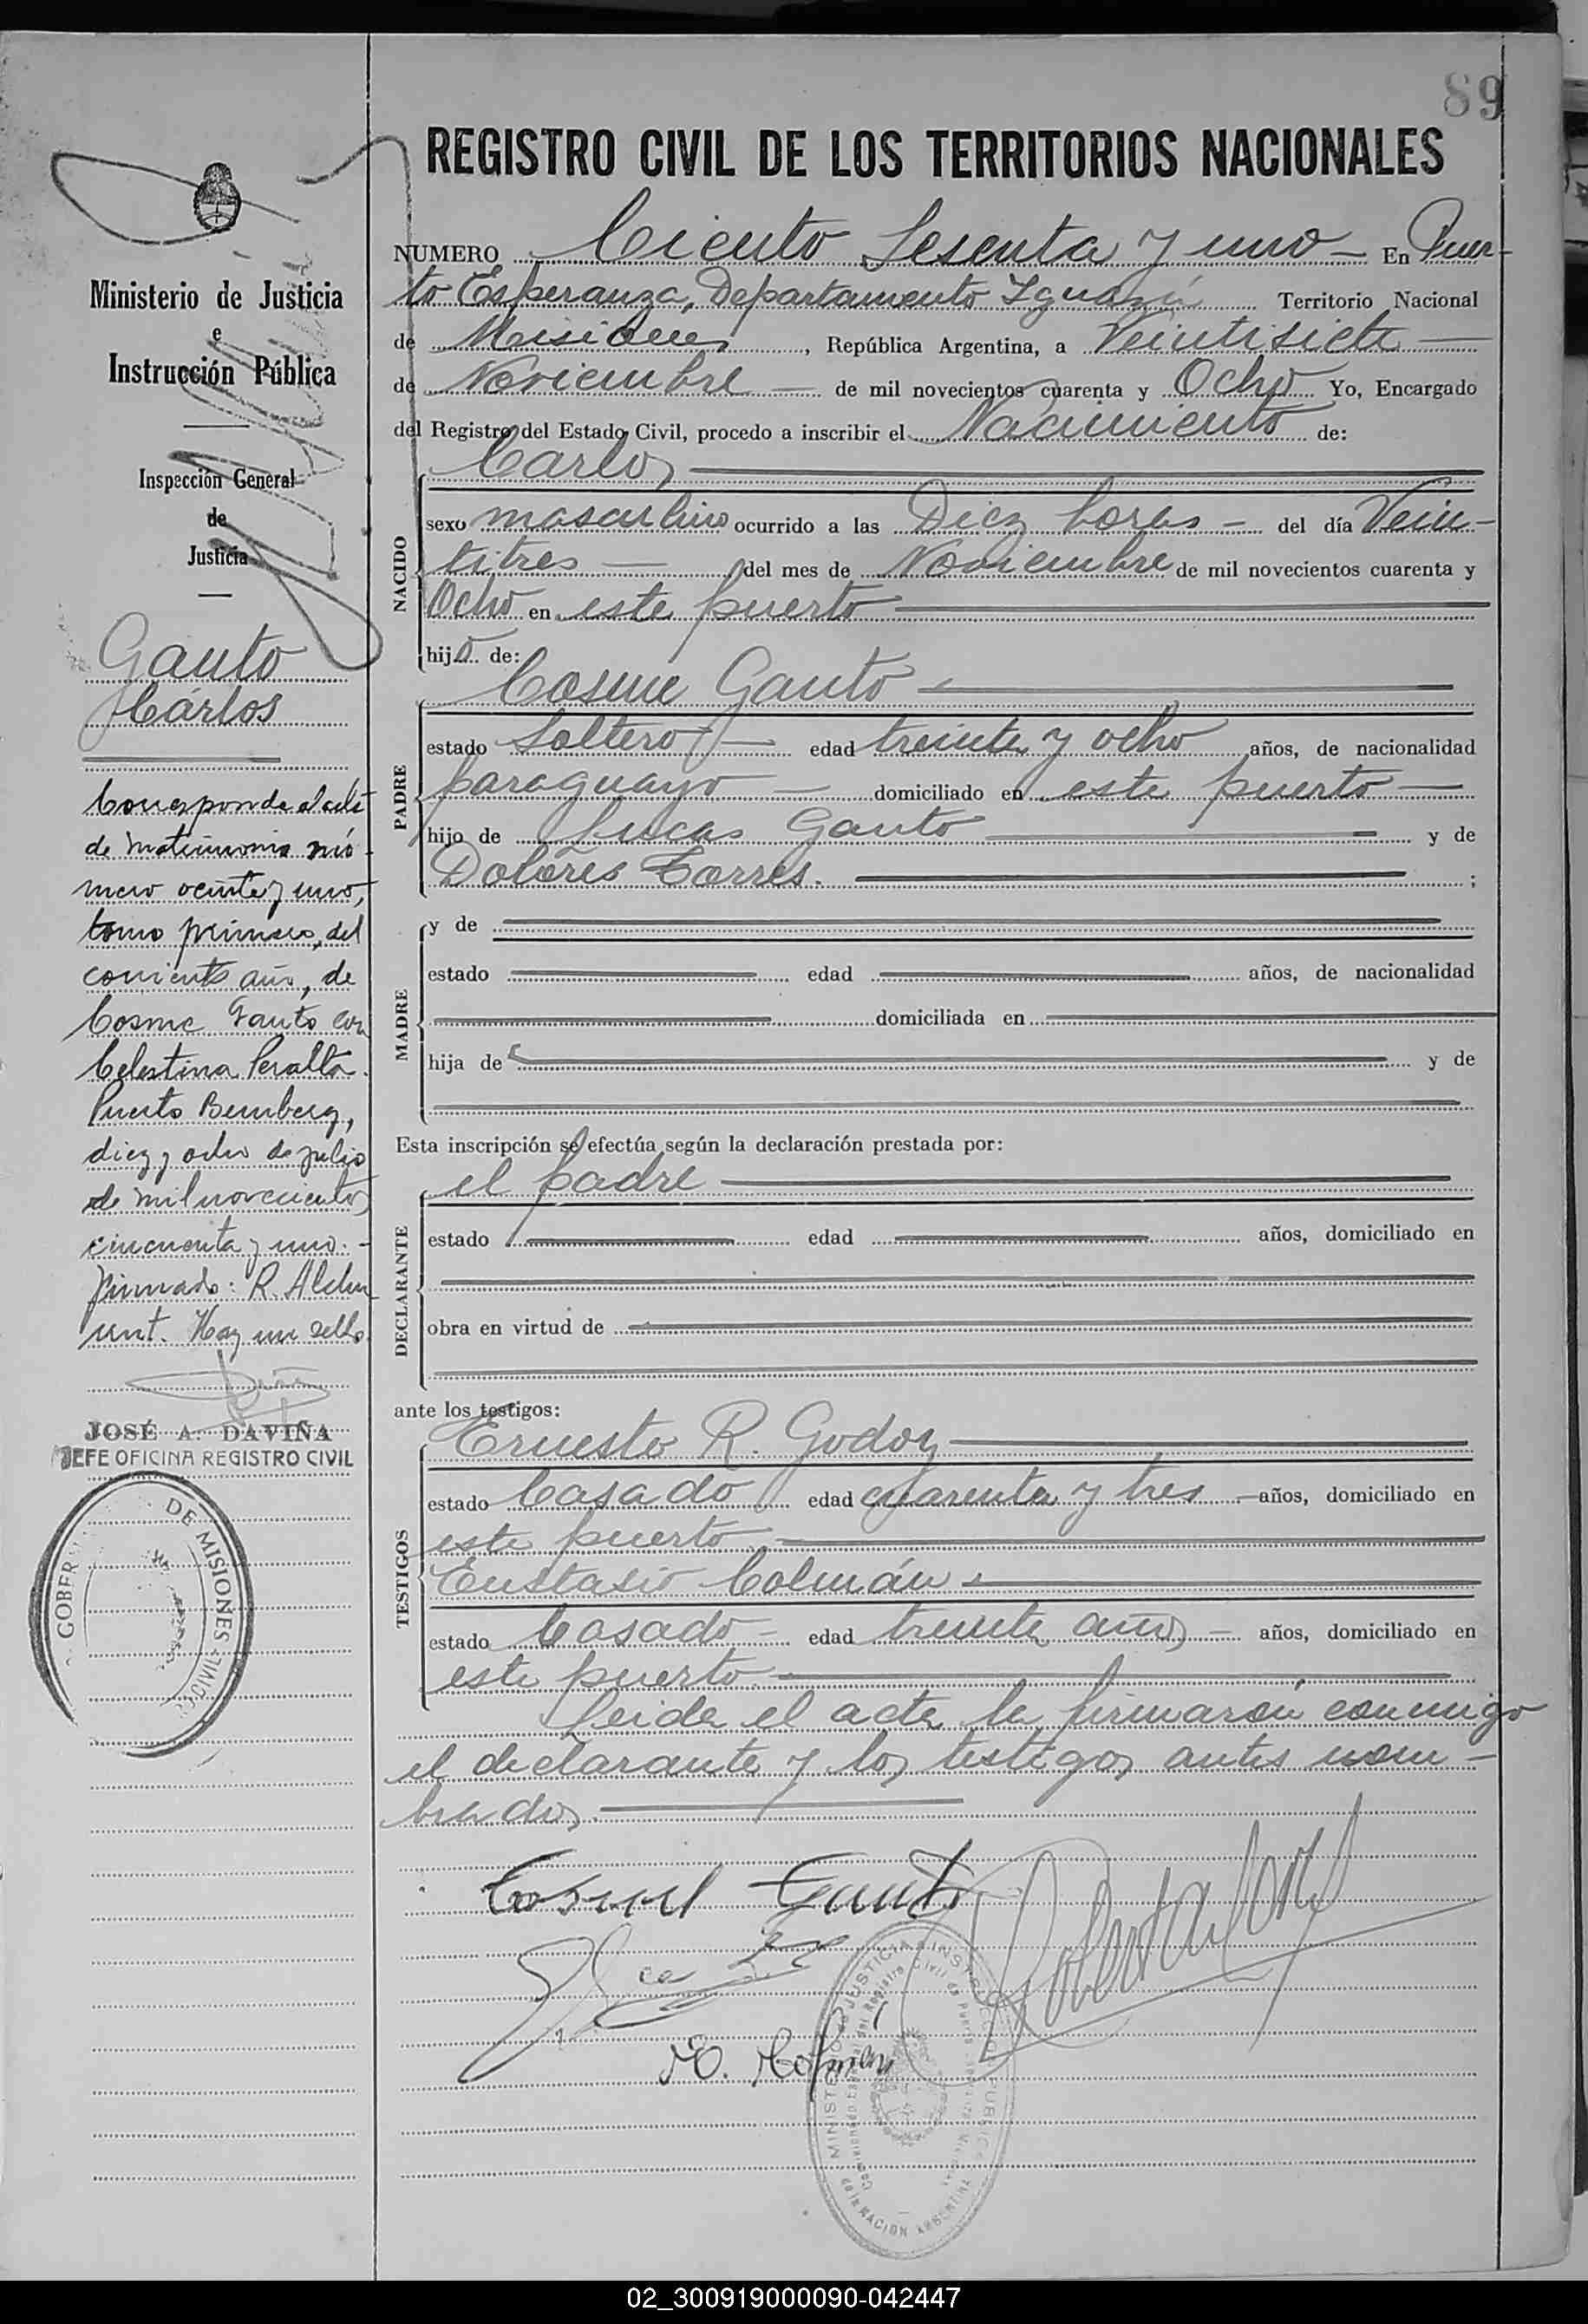 89
REGISTRO CIVIL DE LOS TERRITORIOS NACIONALES
NUMERO Ciento Sesenta y uno En Puer-
to Esperanza, Departamento Iguazú Territorio Nacional
de Misiones, República Argentina, a Veintisiete
de Noviembre de mil novecientos cuarenta y Ocho Yo, Encargado
del Registro del Estado Civil, procedo a inscribir el Nacimiento de:
Carlos
NACIDO
sexo masculino ocurrido a las Diez horas del día Vein-
titres del mes de Noviembre de mil novecientos cuarenta y
Ocho en este puerto
hijo de:
Cosme Gauto
PADRE
estado Soltero edad treinta y ocho años, de nacionalidad
paraguayo domiciliado en este puerto
hijo de Lucas Gauto y de
Dolores Torres. ;
MADRE
y de
estado edad años, de nacionalidad
domiciliada en
hija de y de
Esta inscripción se efectúa según la declaración prestada por:
el padre
DECLARANTE
estado edad años, domiciliado en
obra en virtud de
ante los testigos:
TESTIGOS
Ernesto R. Godoy
estado Casado edad cuarenta y tres años, domiciliado en
este puerto
Eustasio Colmán
estado Casado edad treinta años años, domiciliado en
este puerto.
Leida el acta la firmaron conmigo
el declarante y los testigos antes nom-
brados.
Cosme Gauto
Ministerio de Justicia
e
Instrucción Pública
Inspección General
de
Justicia
Gauto
Cárlos
Corresponde al acta
de matrimonio nú-
mero veinte y uno,
tomo primero, del
corriente año, de
Cosme Gauto con
Celestina Peralta.
Puerto Bemberg,
diez y ocho de julio
de mil novecientos
cincuenta y uno.-
firmado: R.
Hay un sello.
JOSÉ A. DAVIÑA
JEFE OFICINA REGISTRO CIVIL
GOBER DE MISIONES
CIVIL
MINISTERIO DE JUSTICIA E INSTRUCCION PUBLICA
de la NACION ARGENTINA
02_300919000090-042447